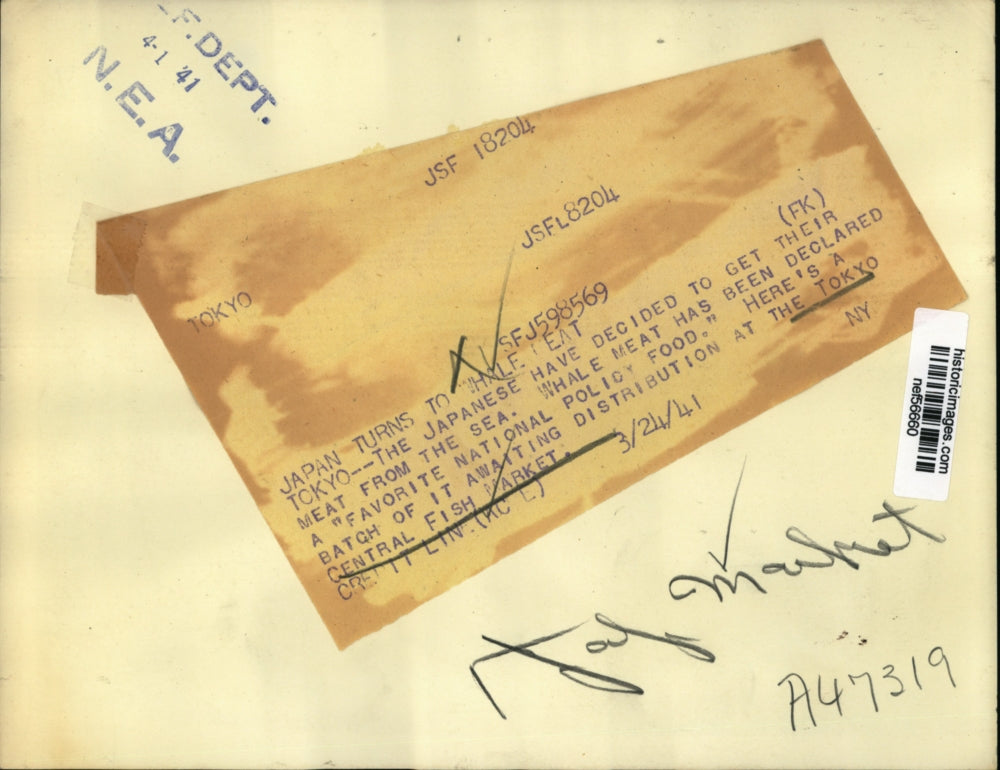 F. DEPT.
4-1 '41
N.E.A.
JSF 18204
JSFL8204
TOKYO
SFJ598569
(FK)
JAPAN TURNS TO WHALE MEAT
TOKYO--THE JAPANESE HAVE DECIDED TO GET THEIR
MEAT FROM THE SEA. WHALE MEAT HAS BEEN DECLARED
A "FAVORITE NATIONAL POLICY FOOD." HERE'S A
BATCH OF IT AWAITING DISTRIBUTION AT THE TOKYO
CENTRAL FISH MARKET.
NY
3/24/41
historicimages.com
nef56660
Market
A47319